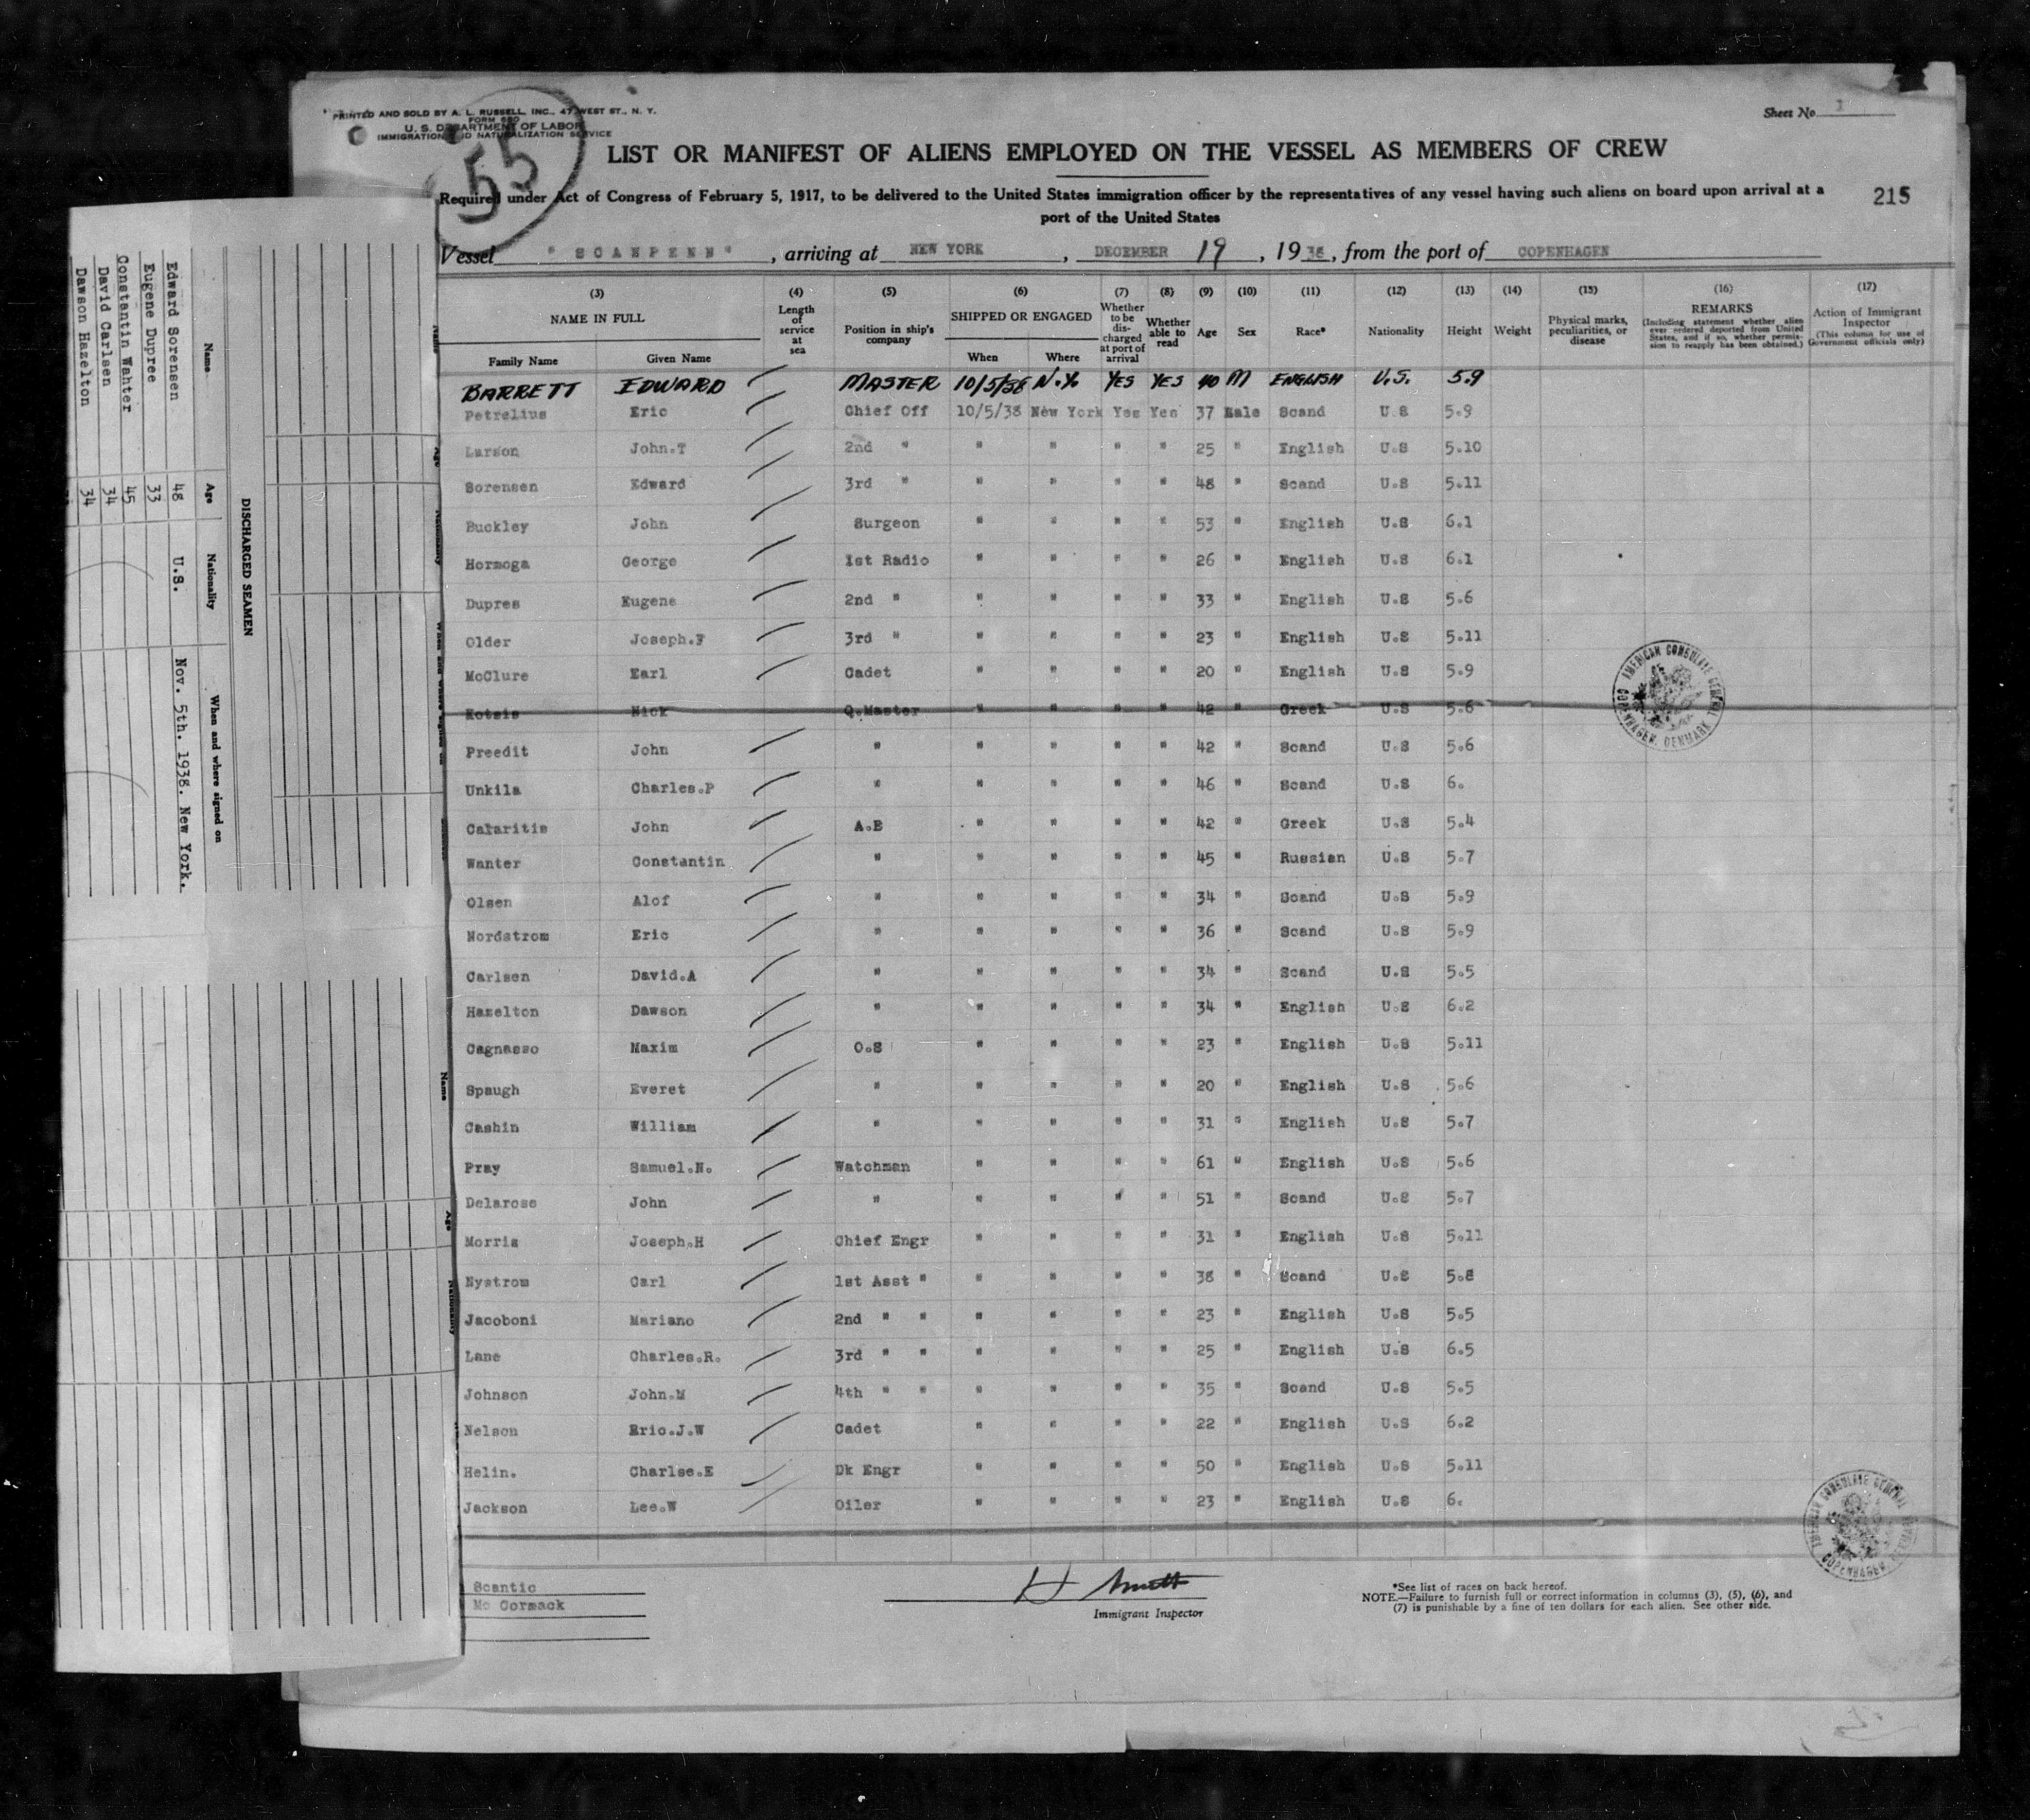 PRINTED AND SOLD BY A. L. RUSSELL, INC., 47 WEST ST., N. Y.
FORM 680
U. S. DEPARTMENT OF LABOR
IMMIGRATION AND NATURALIZATION SERVICE
55
Sheet No. 1
LIST OR MANIFEST OF ALIENS EMPLOYED ON THE VESSEL AS MEMBERS OF CREW
Required under Act of Congress of February 5, 1917, to be delivered to the United States immigration officer by the representatives of any vessel having such aliens on board upon arrival at a
port of the United States
215
Vessel " SCANPENN " , arriving at NEW YORK , DECEMBER 19 , 1938, from the port of COPENHAGEN
(3) (4) (5) (6) (7) (8) (9) (10) (11) (12) (13) (14) (15) (16) (17)
NAME IN FULL Length of service at sea Position in ship's company SHIPPED OR ENGAGED Whether to be discharged at port of arrival Whether able to read Age Sex Race* Nationality Height Weight Physical marks, peculiarities, or disease REMARKS (Including statement whether alien ever ordered deported from United States, and if so, whether permission to reapply has been obtained.) Action of Immigrant Inspector (This column for use of Government officials only)
Family Name Given Name When Where
BARRETT EDWARD MASTER 10/5/38 N.Y. YES YES 40 M ENGLISH U.S. 5.9
Petrelius Eric Chief Off 10/5/38 New York Yes Yes 37 Male Scand U.S 5.9
Larson John.T 2nd " " " " " 25 " English U.S 5.10
Sorensen Edward 3rd " " " " " 48 " Scand U.S 5.11
Buckley John Surgeon " " " " 53 " English U.S 6.1
Hormoga George 1st Radio " " " " 26 " English U.S 6.1
Dupres Eugene 2nd " " " " " 33 " English U.S 5.6
Older Joseph.F 3rd " " " " " 23 " English U.S 5.11
McClure Earl Cadet " " " " 20 " English U.S 5.9
Kotsis Nick Q.Master " " " " 42 " Greek U.S 5.6
Preedit John " " " " " 42 " Scand U.S 5.6
Unkila Charles.P " " " " " 46 " Scand U.S 6.
Calaritis John A.B " " " " 42 " Greek U.S 5.4
Wanter Constantin " " " " " 45 " Russian U.S 5.7
Olsen Alof " " " " " 34 " Scand U.S 5.9
Nordstrom Eric " " " " " 36 " Scand U.S 5.9
Carlsen David.A " " " " " 34 " Scand U.S 5.5
Hazelton Dawson " " " " " 34 " English U.S 6.2
Cagnasso Maxim O.S " " " " 23 " English U.S 5.11
Spaugh Everet " " " " " 20 " English U.S 5.6
Cashin William " " " " " 31 " English U.S 5.7
Pray Samuel.N. Watchman " " " " 61 " English U.S 5.6
Delarose John " " " " " 51 " Scand U.S 5.7
Morris Joseph.H Chief Engr " " " " 31 " English U.S 5.11
Nystrom Carl 1st Asst " " " " " 38 " Scand U.S 5.8
Jacoboni Mariano 2nd " " " " " " 23 " English U.S 5.5
Lane Charles.R. 3rd " " " " " " 25 " English U.S 6.5
Johnson John.M 4th " " " " " " 35 " Scand U.S 5.5
Nelson Eric.J.W Cadet " " " " 22 " English U.S 6.2
Helin. Charlse.E Dk Engr " " " " 50 " English U.S 5.11
Jackson Lee.W Oiler " " " " 23 " English U.S 6.
Scantic
Mc Cormack
Immigrant Inspector
*See list of races on back hereof.
NOTE.—Failure to furnish full or correct information in columns (3), (5), (6), and
(7) is punishable by a fine of ten dollars for each alien. See other side.
AMERICAN CONSULATE GENERAL
COPENHAGEN, DENMARK
AMERICAN CONSULATE GENERAL
COPENHAGEN, DENMARK
DISCHARGED SEAMEN
Name Age Nationality When and where signed on
Edward Sorensen 48 U.S. Nov. 5th. 1938. New York.
Eugene Dupree 33
Constantin Wahter 45
David Carlsen 34
Dawson Hazelton 34
Name
Age
Nationality